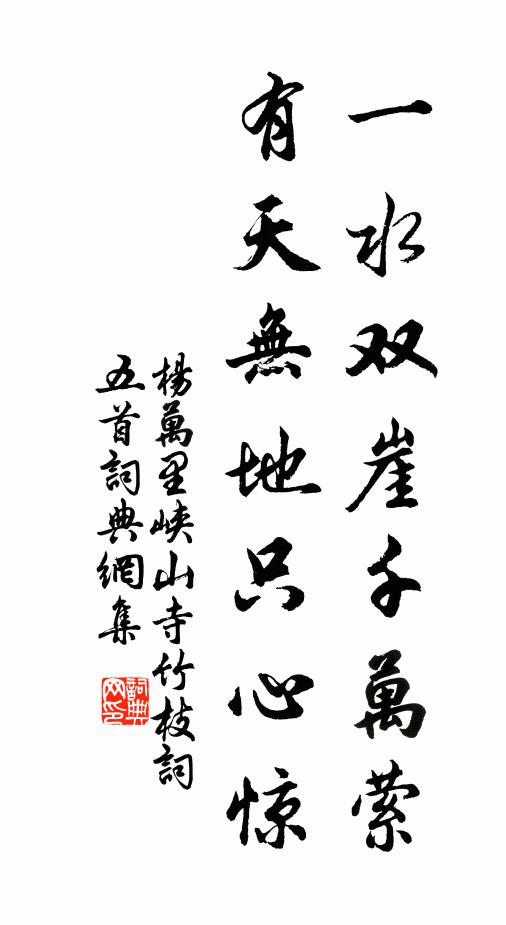 一水双崖千萬萦
有天無地只心惊
楊萬里峡山寺竹枝詞
五首詞典網集
詞典网印